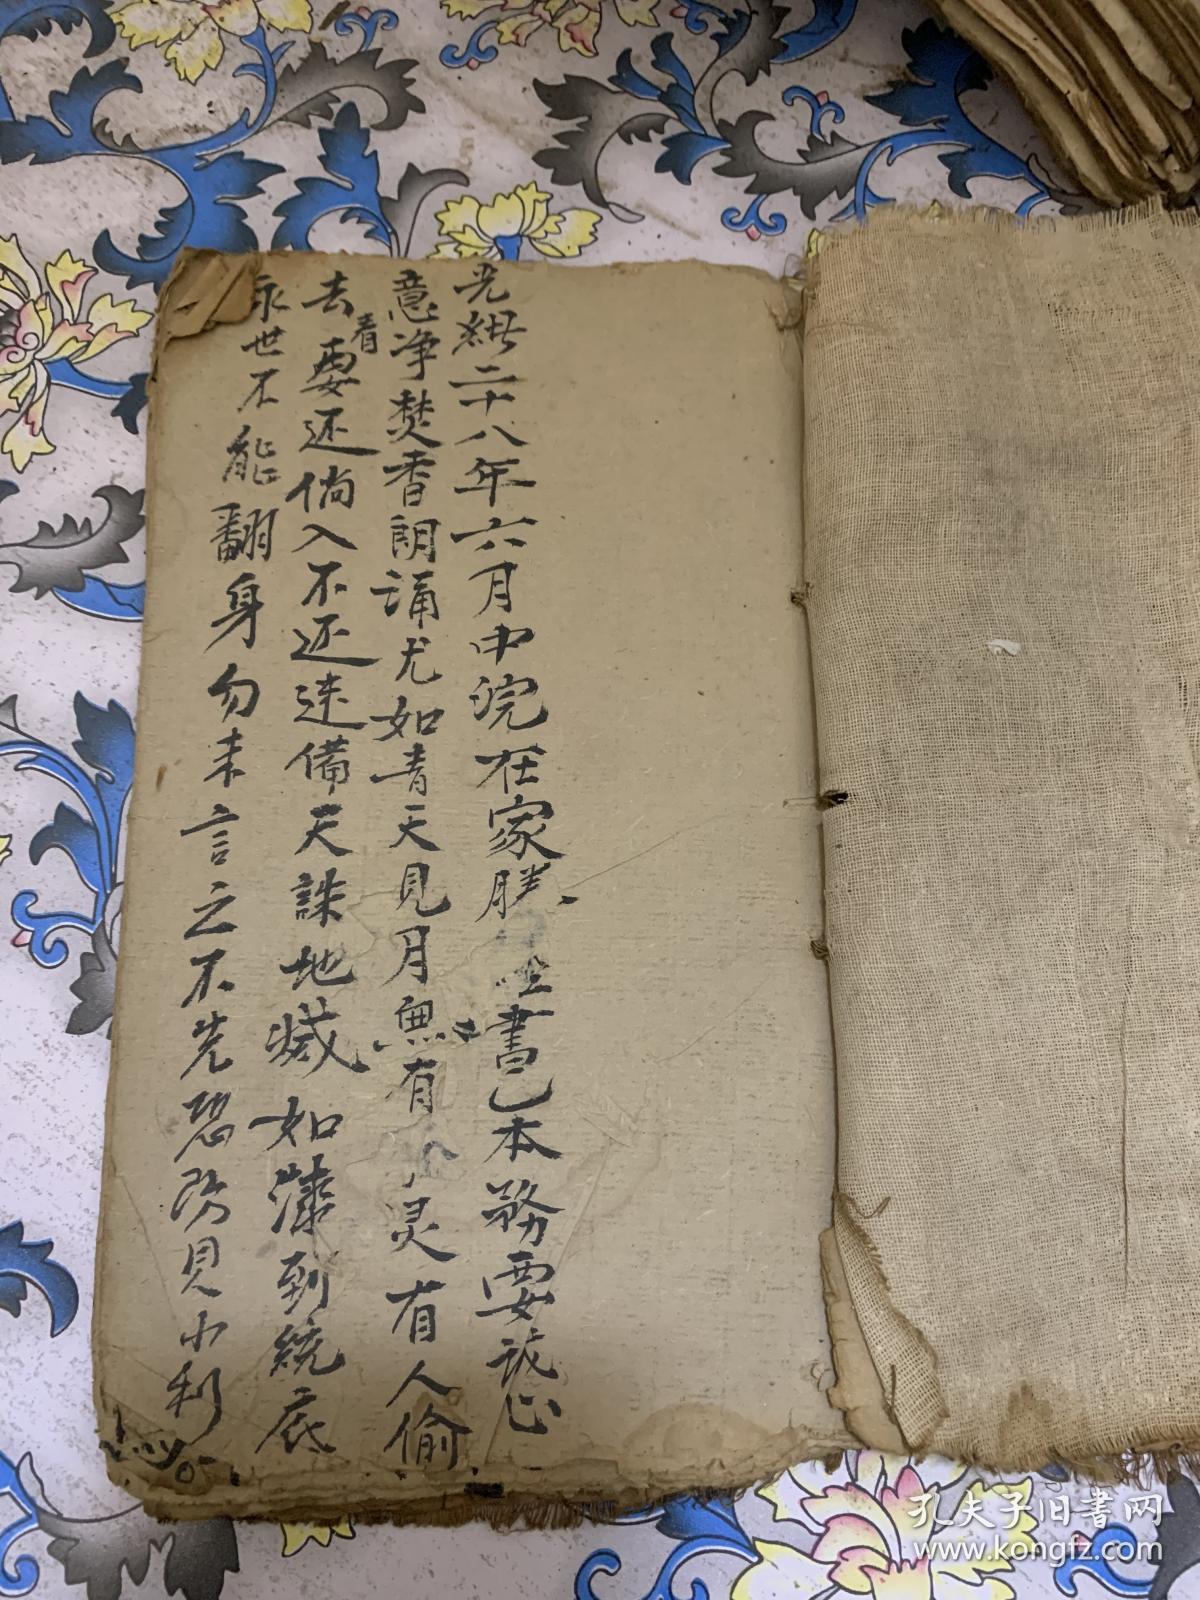 光緒二十八年六月中浣在家謄書己本務要誠心
意净焚香朗誦尤如青天見月無有灵有人偷
去看要还倘入不还違備天誅地藏如漾到統底
永世不能翻身勿未言之不先恐防見小利
孔夫子旧书网
www.kongfz.com